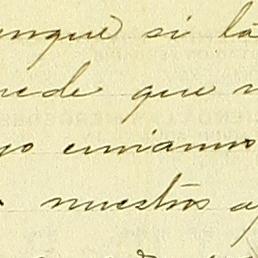 unque si la
uede que
go enviamos
nuestros a